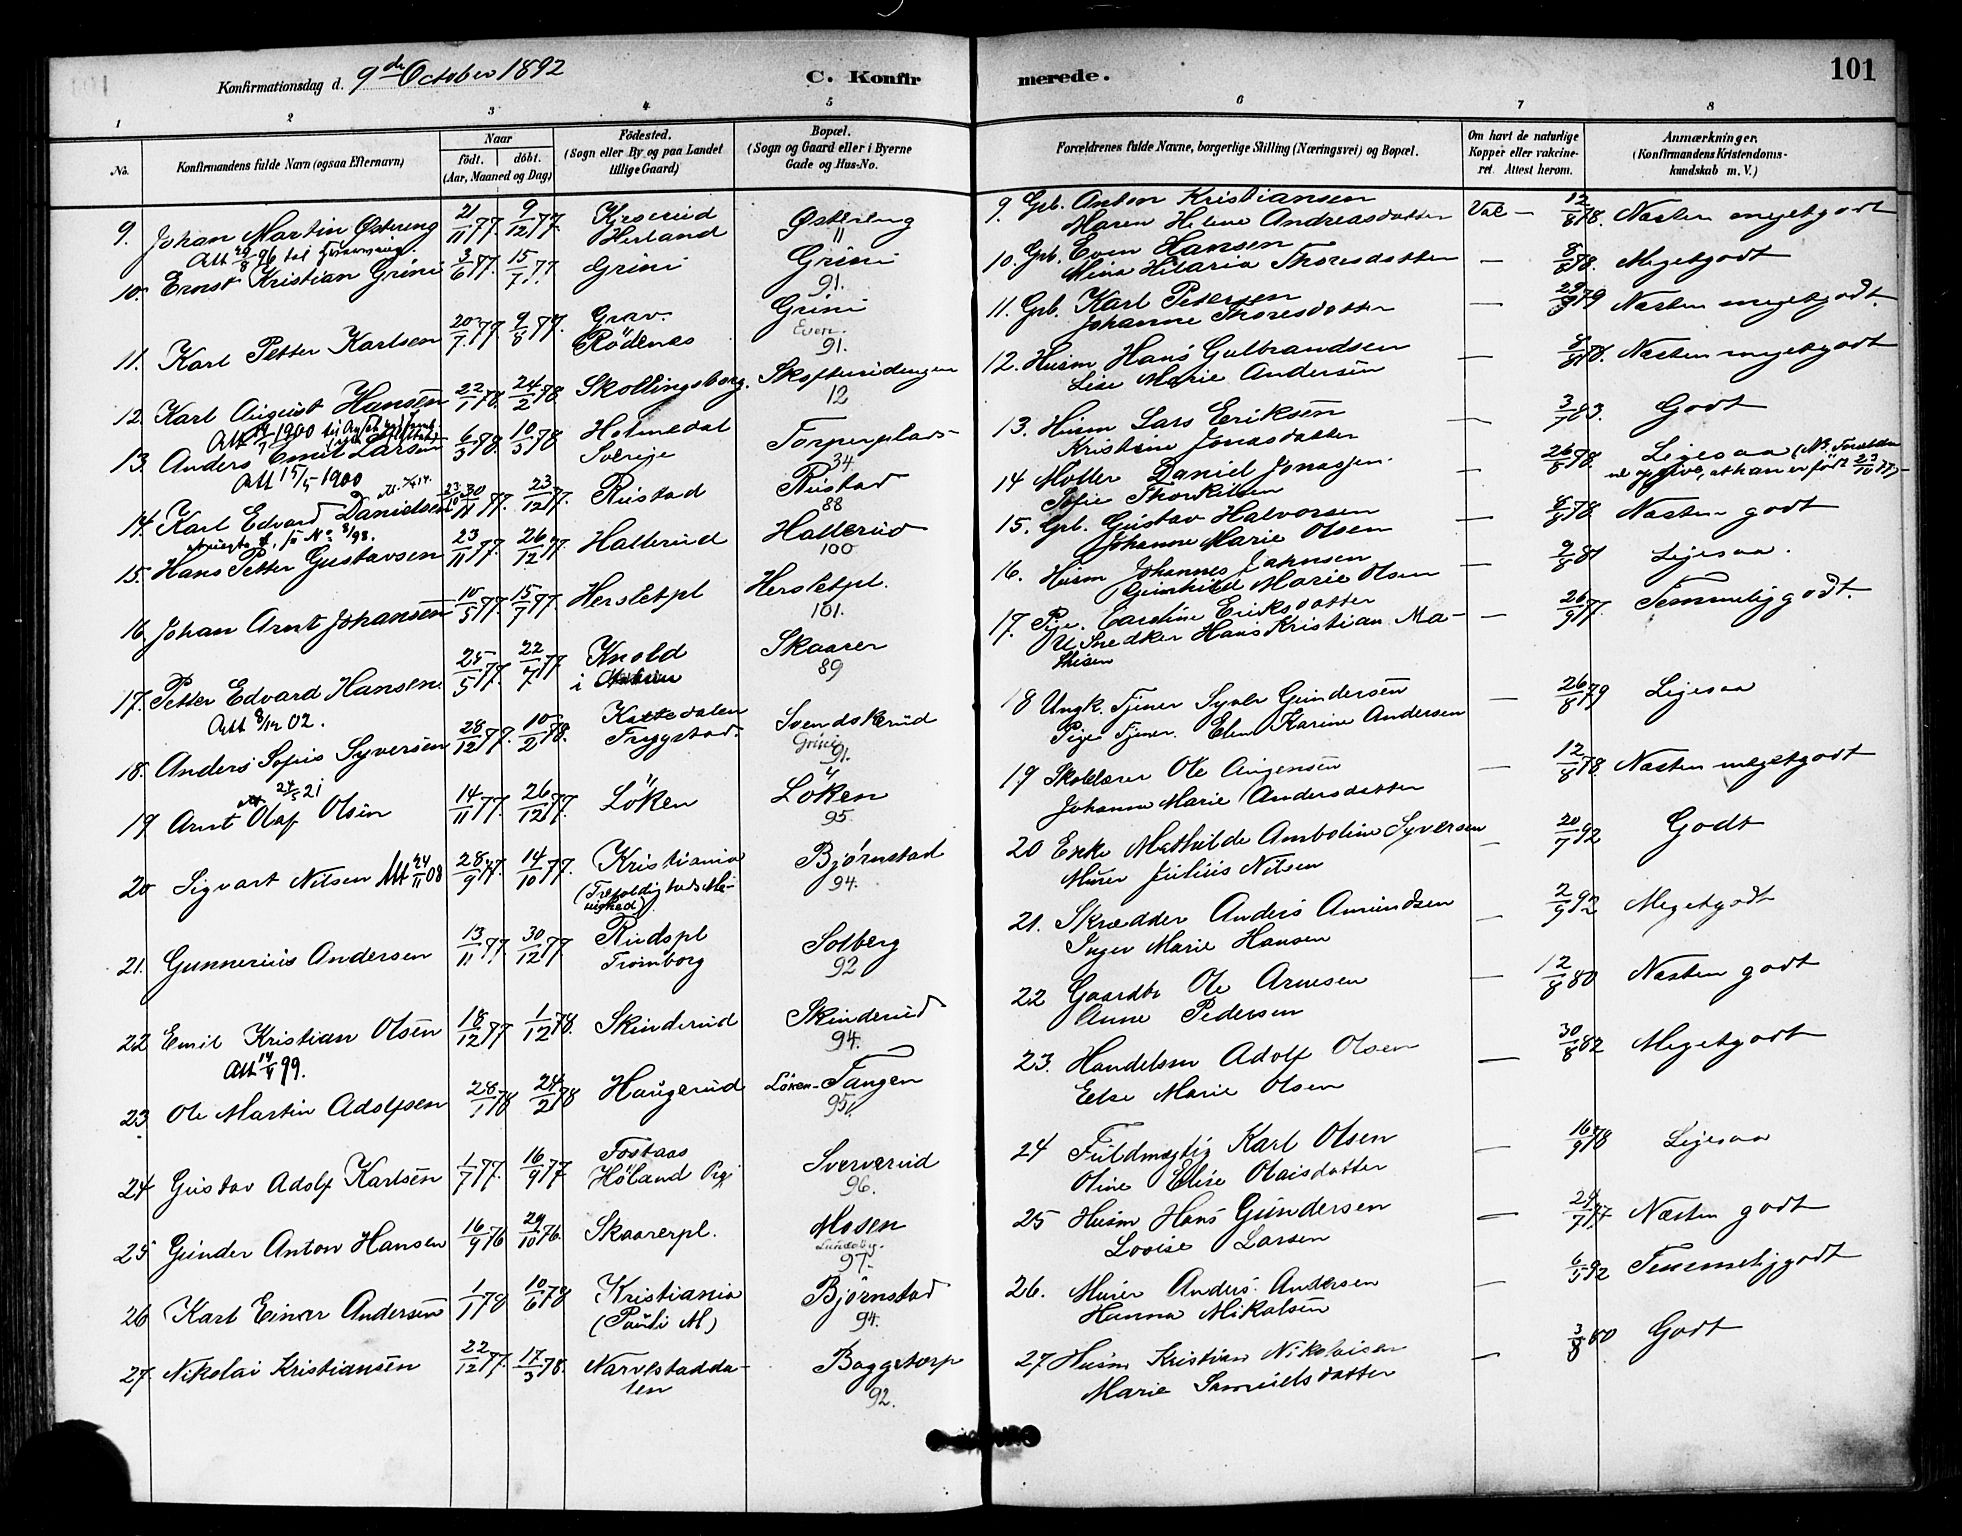 Konfirmationsdag d. 9de October 1892
C. Konfir
merede.
101
1 2 3 4 5 6 7 8
No.
Konfirmandens fulde Navn (ogsaa Efternavn)
Naar
födt. döbt.
(Aar, Maaned og Dag)
Födested.
(Sogn eller By og paa Landet
tillige Gaard)
Bopæl.
(Sogn og Gaard eller i Byerne
Gade og Hus-No.
Forældrenes fulde Navne, borgerlige Stilling (Næringsvei) og Bopæl.
Om havt de naturlige
Kopper eller vakcine-
ret. Attest herom.
Anmærkninger,
(Konfirmandens Kristendoms-
kundskab m. V.)
9. Johan Martin Østereng 21/11 77. 9/12 77. Kjroserud Herland Østereng 11
9. Gbr. Anton Kristiansen Maren Helene Andreasdatter Vac - 12/8 78. Næsten megetgodt
10. Ernst Kristian Grini 3/6 77. 15/7 77 Grini Grini 91.
10. Gbr. Even Hansen Mina Hilaria Thoresdatter — 8/8 78. Megetgodt
11. Karl Petter Karlsen 20/7 77. 9/8 77. Grav. Rödenes Grini Even. 91.
11. Gbr. Karl Petersen Johanne Thoresdatter — 79 Næsten megetgodt.
12. Karl August Hansen 22/1 78. 24/2 78 Skollingsborg. 12
12. Husm Hans Gulbrandsen Lise Marie Andersen — Næsten megetgodt
13. Anders Emil Larsen 6/3 78. 10/3 78 Holmedal Sverige Torperplads- 34.
Att 15/5 1900
13. Husm Lars Eriksen Kristine Jonasdatter — 3/7 83. Godt
14. Karl Edvard Danielsen 30/11 77. 23/12 77. Rustad Rustad 88
14 Møller Daniel Jonassen. Sofie Thorkilsen — 26/8 78. Ligesaa
15. Hans Petter Gustavsen 23/11 77. 26/12 77. Hallerud Hallerud 100
15. Gbr. Gustav Halvorsen Johanne Marie Olsen — 8/8 78. Næsten godt
16. Johan Arnt Johansen 10/5 77. 15/7 77. Hersletpl Hersletpl. 101.
16. Husm Johannes Jahnsen Gunhild Marie Olsen — 9/8 81 Ligesaa.
17. Petter Edvard Hansen. 25/5 77. 22/7 77. Knold i Skaarer 89
Att 8/12 02.
17. Pige. Caroline Eriksdatter U Snedker Hans Kristian Ma-
thisen — 26/9 77. Temmelig godt.
18. Anders Sofus Syversen 28/12 77. 10/2 78. Kattedalen Trygstad. Svendskerud Grini 91.
18 Ungk. Tjener Syver Gundersen Pige Tjener. Elen Karine Andersen — 26/8 79 Ligesaa
19 Arnt Olaf Olsen 14/11 77. 26/12 77. Löken Löken 95.
19 Skolelærer Ole Augensen Johanne Marie Andersdatter — 12/8 78. Næsten megetgodt
20 Sigvart Nilsen Att 24/11 08 28/9 77. 14/10 77. Kristiania (Trefoldigheds Me-
nighed) Bjørnstad 94.
20 Enke Mathilde Amboline Syversen Murer Julius Nilsen — 20/7 92 Godt
21. Gunnerius Andersen 13/11 77. 30/12 77. Rudspl Trømborg Solberg 92
21. Skrædder Anders Amundsen Inger Marie Hansen — 2/9 92 Megetgodt
22 Emil Kristian Olsen 18/12 77 1/12 78. Skinderud Skinderud 94.
Att 14/4 99.
22 Gaardbr Ole Arnesen Anne Pedersen — 12/8 80 Næsten godt
23 Ole Martin Adolfsen 28/1 78 24/2 78 Haugerud Löken-Tangen 95.
23. Handelsm Adolf Olsen Else Marie Olsen — 30/8 82 Megetgodt
24 Gustav Adolf Karlsen 1/7 77. 16/9 77 Fostaas Høland Pgj Sververud 96.
24 Fuldmægtig Karl Olsen Oline Elise Olaisdatter — 16/9 78 Ligesaa
25 Gunder Anton Hansen 16/9 76 29/10 76. Skaarerpl. Mosen Lundeby. 97-
25 Husm Hans Gundersen Lovise Larsen — 24/7 77 Næsten godt
26 Karl Einar Andersen 1/1 78 10/6 78 Kristiania (Pauli M) Bjørnstad 94.
26. Murer Anders Andersen Hanna Mikalsen — 6/5 92 Temmeligodt
27. Nikolai Kristiansen 22/12 77. 17/3 78. Narvestadda-
len Baggetorp 92.
27 Husm Kristian Nikolaisen Marie Samuelsdatter — 3/8 80 Godt